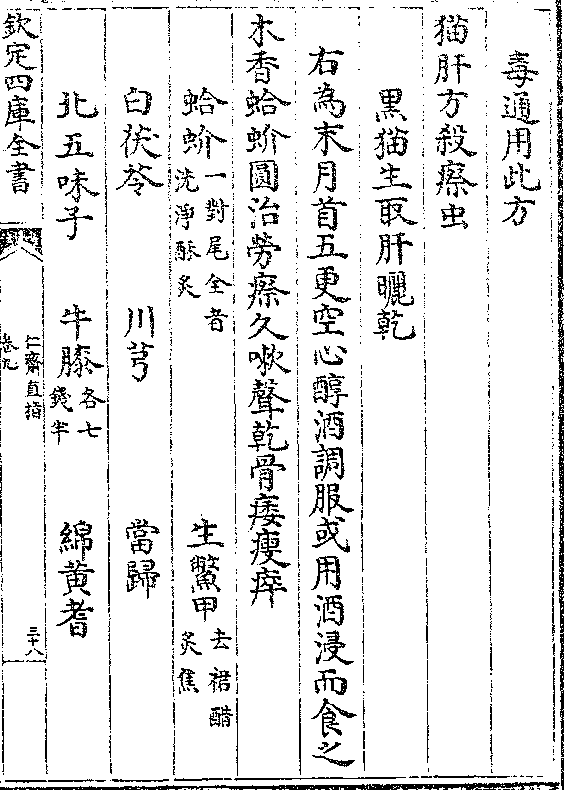 毒通用此方
猫肝方殺瘵虫
黒猫生取肝曬乾
右為末月首五更空心醇酒調服或用酒浸而食之
木香蛤蚧圓治勞瘵久嗽聲乾骨痿瘦瘁
蛤蚧一對尾全者洗淨酥炙 生鱉甲去裙醋炙焦
白茯苓 川芎 當歸
北五味子 牛膝各七錢半 綿黄耆
欽定四庫全書
仁齋直指
卷九
三十八